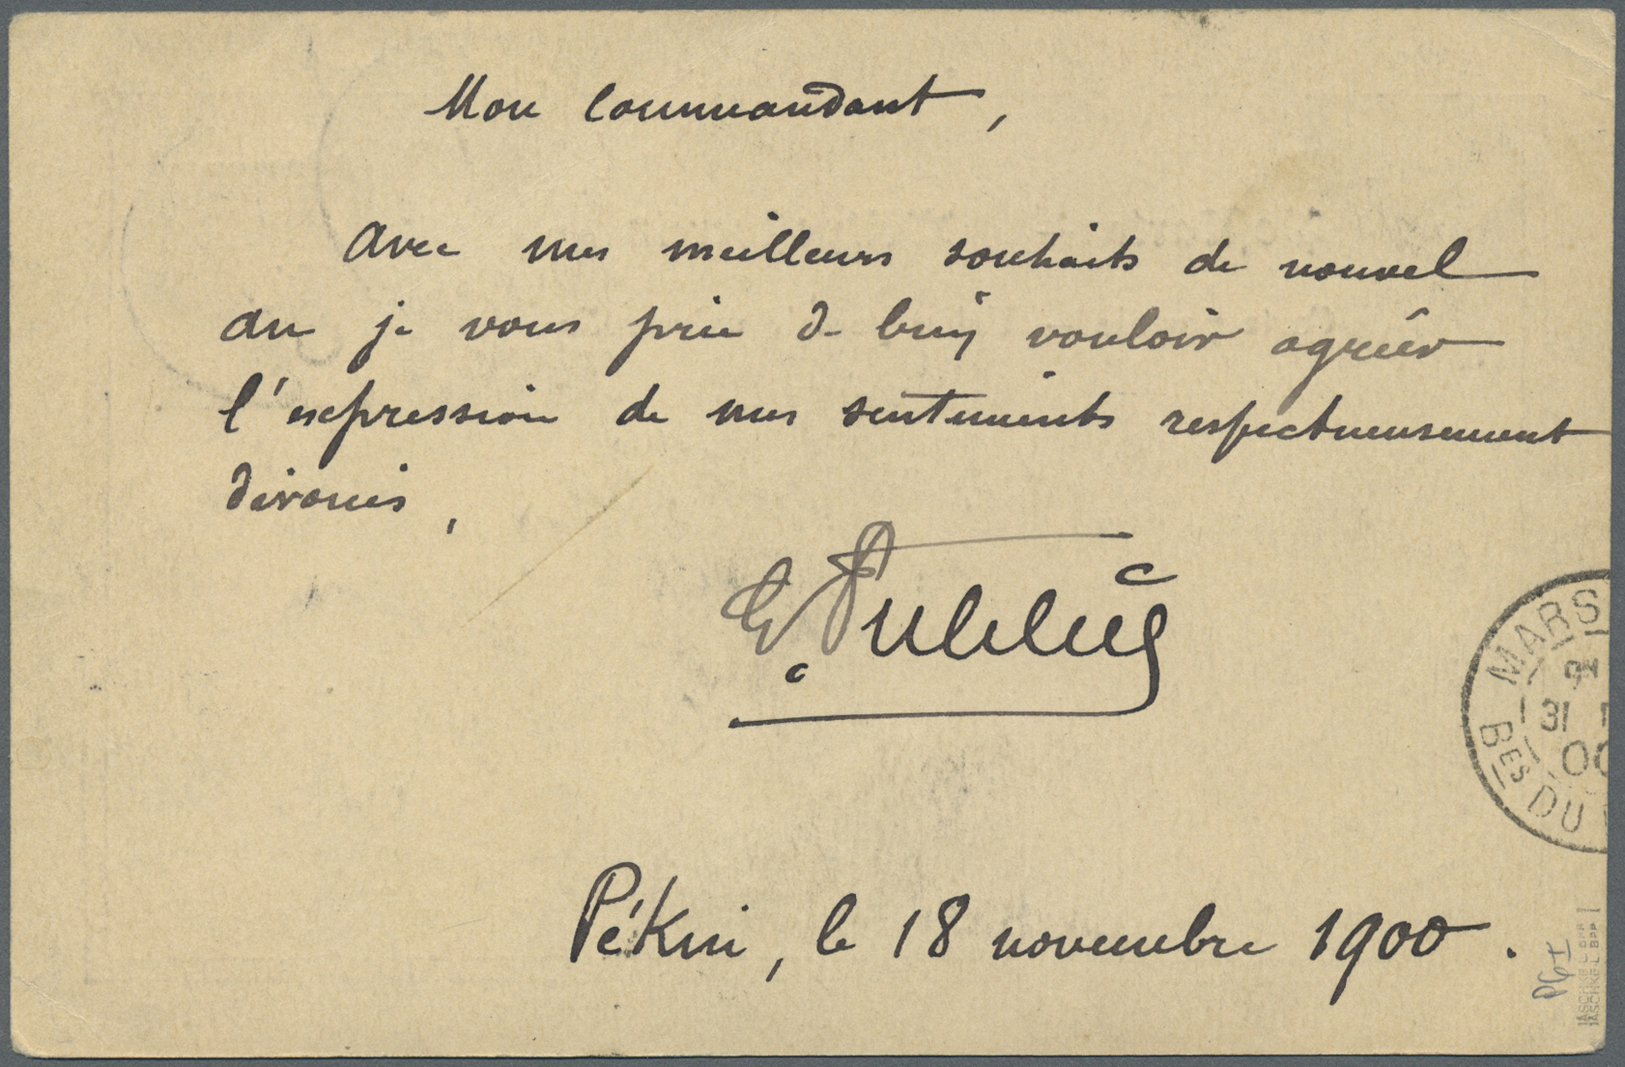 Mon Commandant,
Avec mes meilleurs souhaits de nouvel
an je vous prie de bien vouloir agréer
l'expression de mes sentiments respectueusement
dévoués,
Pékin, le 18 novembre 1900.
MARS
31
00
Bes DU
JASCHKE-L BPP
JASCHKE-L BPP